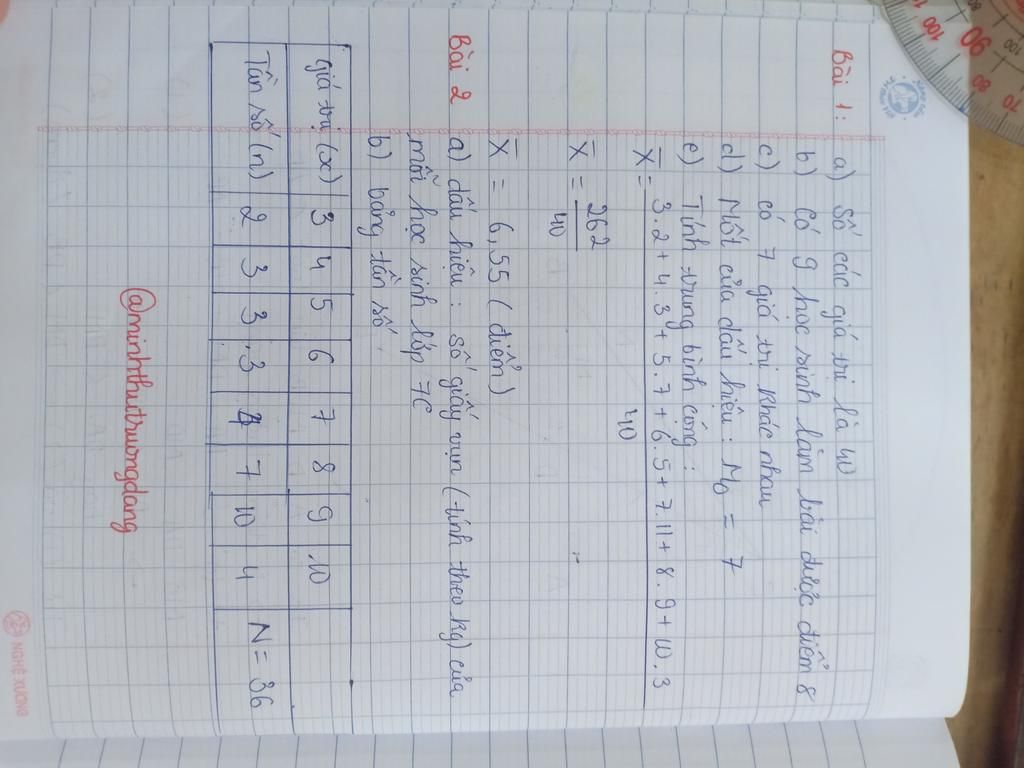 Bài 1: a) Số các giá trị là 40
b) Có 9 học sinh làm bài được điểm 8
c) có 7 giá trị khác nhau
d) Mốt của dấu hiệu: M0 = 7
e) Tính trung bình cộng:
X̄ = 3.2 + 4.3 + 5.7 + 6.5 + 7.11 + 8.9 + 10.3
40
X̄ = 262
40
X̄ = 6,55 (điểm)
Bài 2 a) dấu hiệu: số giấy vụn (tính theo kg) của
mỗi học sinh lớp 7C
b) bảng tần số
giá trị (x) 3 4 5 6 7 8 9 10
Tần số (n) 2 3 3 3 4 7 10 4 N = 36
@minhthutruongdang
NGHỆ XƯƠNG
90
100
100
110
80
70